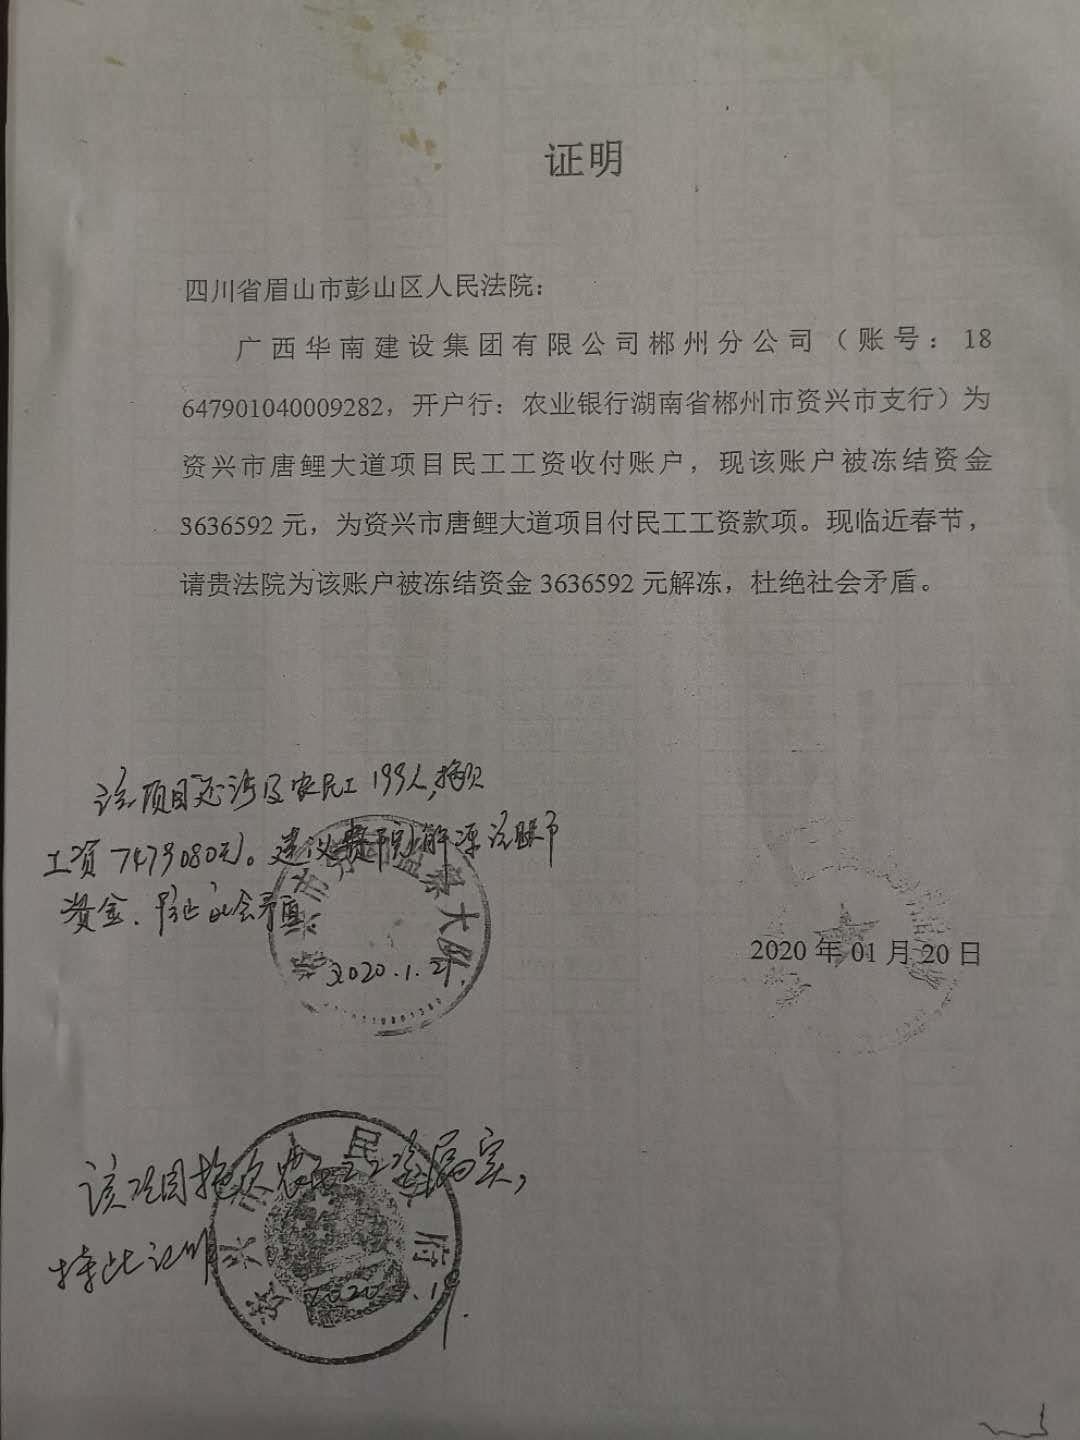 证明
四川省眉山市彭山区人民法院：
广西华南建设集团有限公司郴州分公司（账号：18
647901040009282，开户行：农业银行湖南省郴州市资兴市支行）为
资兴市唐鲤大道项目民工工资收付账户，现该账户被冻结资金
3636592 元，为资兴市唐鲤大道项目付民工工资款项。现临近春节，
请贵法院为该账户被冻结资金 3636592 元解冻，杜绝社会矛盾。
该项目还涉及农民工 199人，拖欠
工资 7479080元。建议贵院解
资金，防止社会矛盾。
大队
2020.1.21.
2020 年 01 月 20 日
该项目拖欠农民工工资属实，
特此证明
民
府